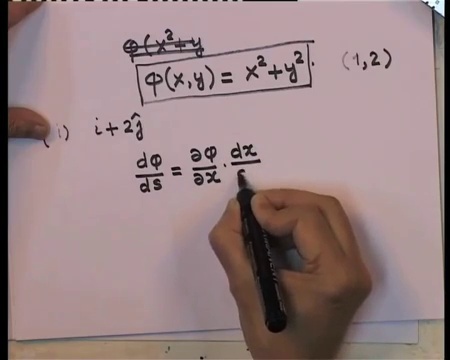 φ(x²+y
φ(x,y) = x²+y². (1,2)
(i) i+2ĵ
dφ/ds = ∂φ/∂x · dx/